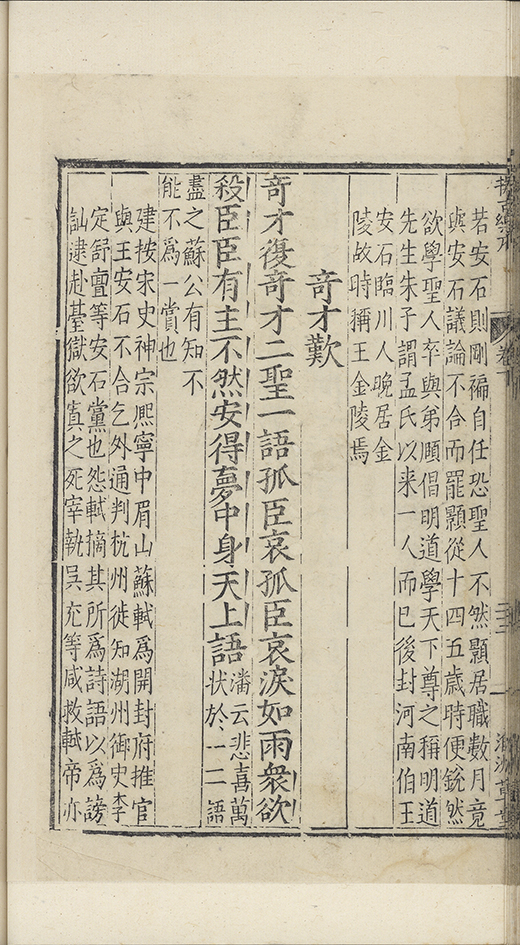 卷下
若安石則剛褊自任恐聖人不然顥居職數月竟
與安石議論不合而罷顥從十四五歲時便銳然
欲學聖人卒與弟頤倡明道學天下尊之稱明道
先生朱子謂孟氏以来一人而已後封河南伯王
安石臨川人晚居金
陵故時稱王金陵焉
奇才歎
奇才復奇才二聖一語孤臣哀孤臣哀淚如雨衆欲
殺臣臣有主不然安得夢中身天上語
潘云悲喜萬
狀於一二語
盡之蘇公有知不
能不爲一賞也
建按宋史神宗熙寧中眉山蘇軾爲開封府推官
與王安石不合乞外通判杭州徙知湖州御史李
定舒亶等安石黨也怨軾摘其所爲詩語以爲謗
訕逮赴臺獄欲寘之死宰執吳充等咸救軾帝亦